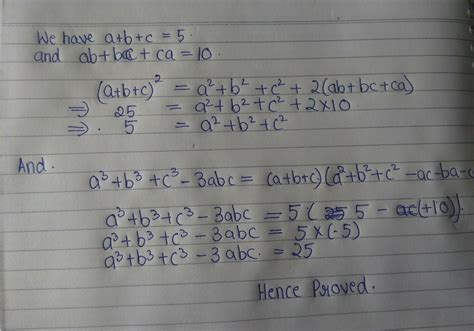 We have a+b+c = 5
and ab+bc+ca = 10.
(a+b+c)² = a²+b²+c²+2(ab+bc+ca)
⇒ 25 = a²+b²+c²+2×10
⇒ 5 = a²+b²+c²
And.
a³+b³+c³-3abc = (a+b+c)(a²+b²+c²-ac-ba-c
a³+b³+c³-3abc = 5( 5 - (+10)).
a³+b³+c³-3abc = 5×(-5)
a³+b³+c³-3abc. = 25
Hence Proved.